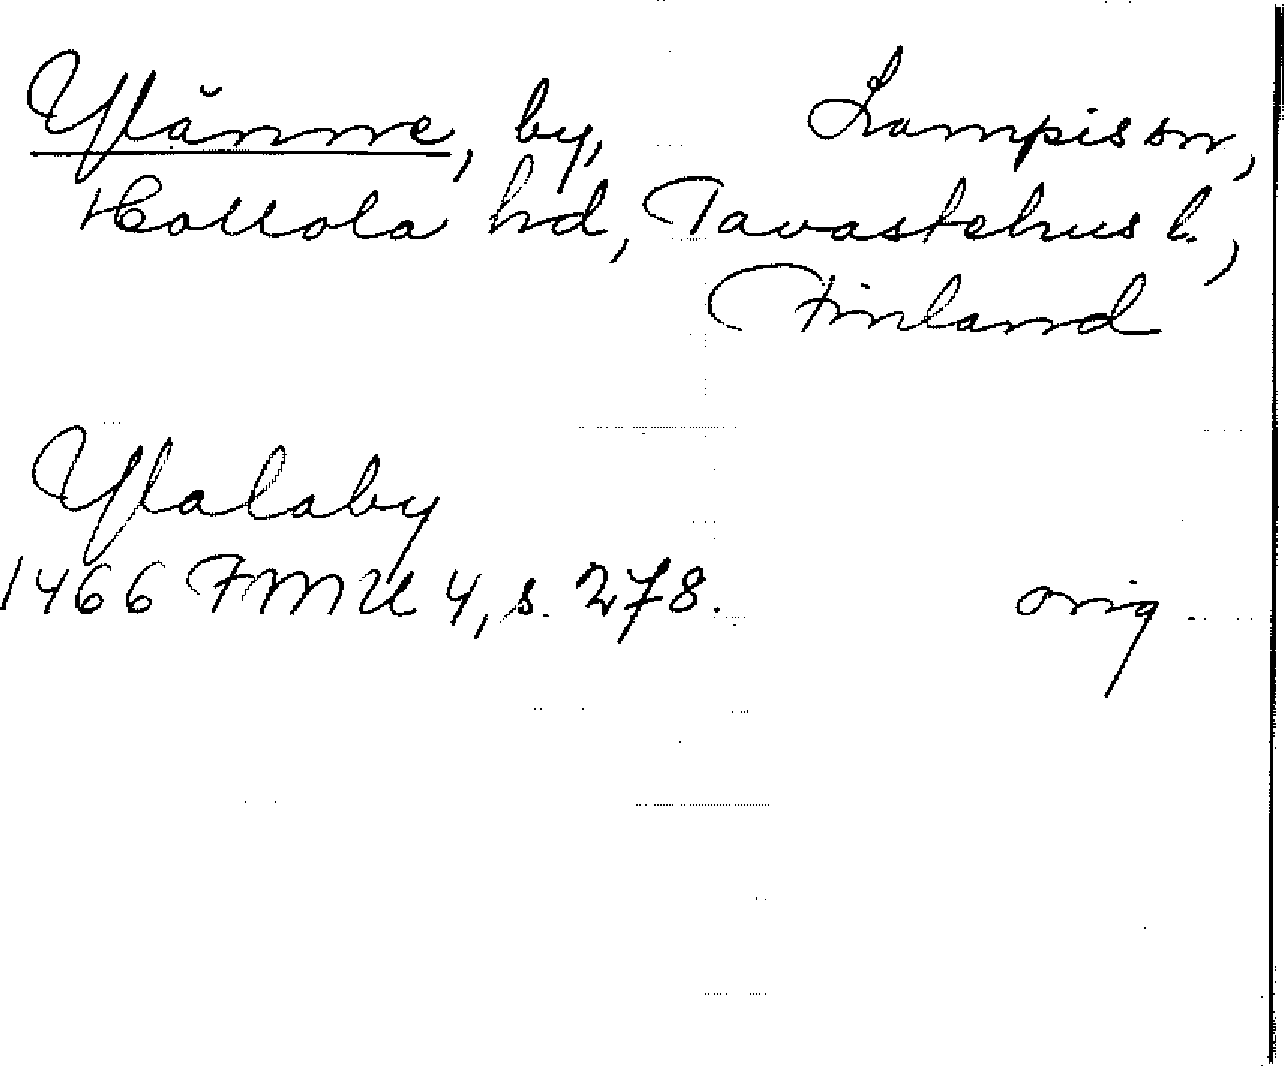 Ylänne, by, Lampis sn,
Hollola hd, Tavastehus l.,
Finland
Ylalaby
1466 FMU 4, s. 278. orig